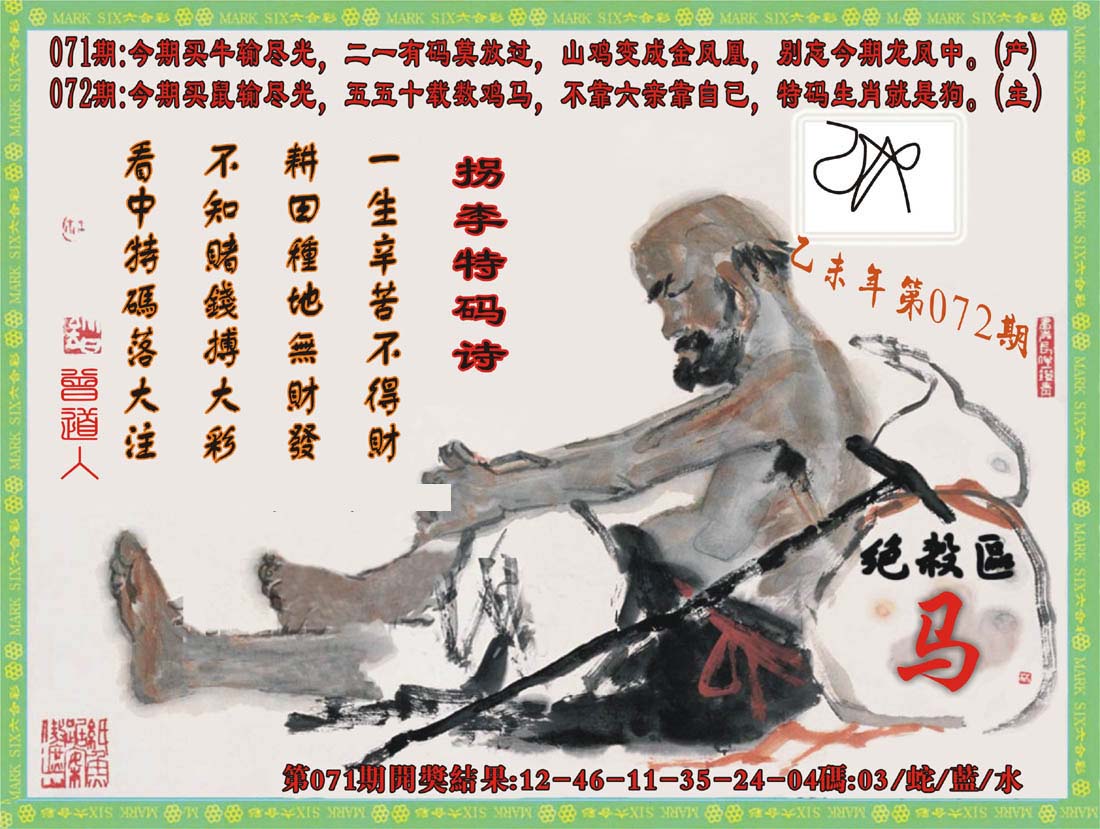 MARK SIX六合彩
071期:今期买牛输尽光，二一有码莫放过，山鸡变成金凤凰，别忘今期龙凤中。(产)
072期:今期买鼠输尽光，五五十载数鸡马，不靠六亲靠自已，特码生肖就是狗。(主)
拐李特码诗
一生辛苦不得財
耕田種地無財發
不知賭錢搏大彩
看中特碼落大注
曾道人
乙未年第072期
绝殺區
马
第071期開獎結果:12-46-11-35-24-04碼:03/蛇/藍/水